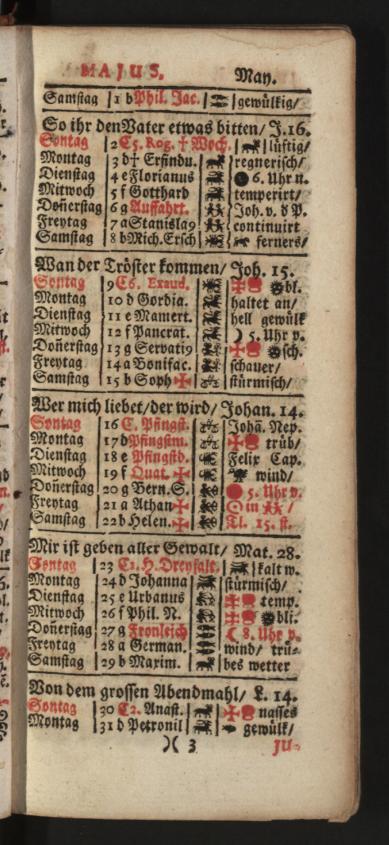 MAJUS, May.
Samstag 1 b Phil. Jac. gewülkig/
So ihr den Vater etwas bitten/ J.16.
Sontag 2 C5. Rog. † Woch. lüftig/
Montag 3 d† Erfindu. regnerisch/
Dienstag 4 e Florianus 6. Uhr n.
Mitwoch 5 f Gotthard temperirt/
Doñerstag 6 g Auffahrt. Joh. v. d P.
Freytag 7 a Stanisla9 continuirt
Samstag 8 b Mich. Ersch ferners/
Wan der Tröster kommen/ Joh. 15.
Sontag 9 C6. Exaud. bl.
Montag 10 d Gordia. haltet an/
Dienstag 11 e Mamert. hell gewülk
Mitwoch 12 f Pancrat. 5. Uhr v.
Doñerstag 13 g Servati9 sch.
Freytag 14 a Bonifac. schauer/
Samstag 15 b Soph stürmisch/
Wer mich liebet/ der wird/ Johan. 14.
Sontag 16 C. Pfingst. Johã. Nep.
Montag 17 d Pfingstm. trüb/
Dienstag 18 e Pfingstd. Felix Cap.
Mitwoch 19 f Quat. wind/
Doñerstag 20 g Bern. S. 5. Uhr v.
Freytag 21 a Athan in
Samstag 22 b Helen. Kl. 15. st.
Mir ist geben aller Gewalt/ Mat. 28.
Sontag 23 C1. H. Dreyfalt. kalt w.
Montag 24 d Johanna stürmisch/
Dienstag 25 e Urbanus temp.
Mitwoch 26 f Phil. N. bli.
Doñerstag 27 g Fronleich 8. Uhr v.
Freytag 28 a German. wind/ trü-
Samstag 29 b Maxim. bes wetter
Von dem grossen Abendmahl/ L. 14.
Sontag 30 C2. Anast. nasses
Montag 31 d Petronil gewülk/
)( 3 JU-